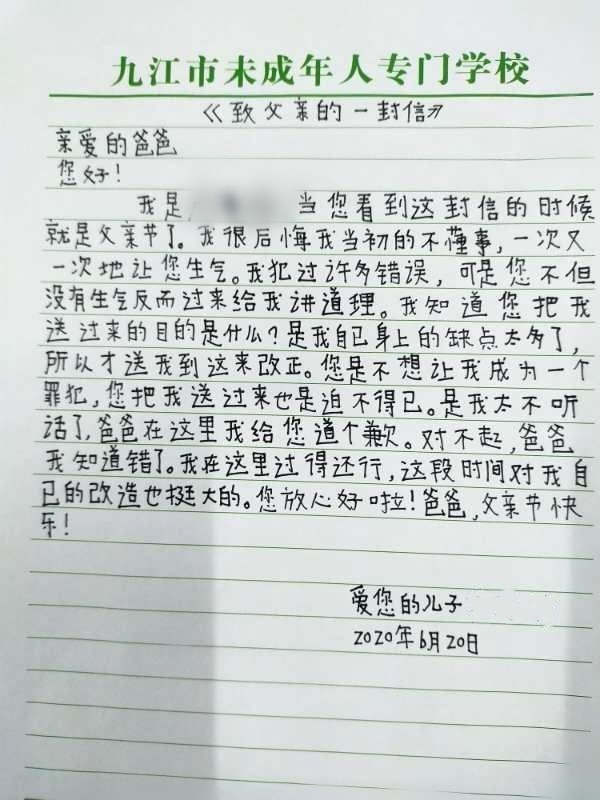 九江市未成年人专门学校
《致父亲的一封信》
亲爱的爸爸
您好！
我是 当您看到这封信的时候
就是父亲节了。我很后悔我当初的不懂事，一次又
一次地让您生气。我犯过许多错误，可是您不但
没有生气反而过来给我讲道理。我知道您把我
送过来的目的是什么？是我自己身上的缺点太多了，
所以才送我到这来改正。您是不想让我成为一个
罪犯，您把我送过来也是迫不得已。是我太不听
话了，爸爸在这里我给您道个歉。对不起，爸爸
我知道错了。我在这里过得还行，这段时间对我自
己的改造也挺大的。您放心好啦！爸爸，父亲节快
乐！
爱您的儿子
2020年6月20日